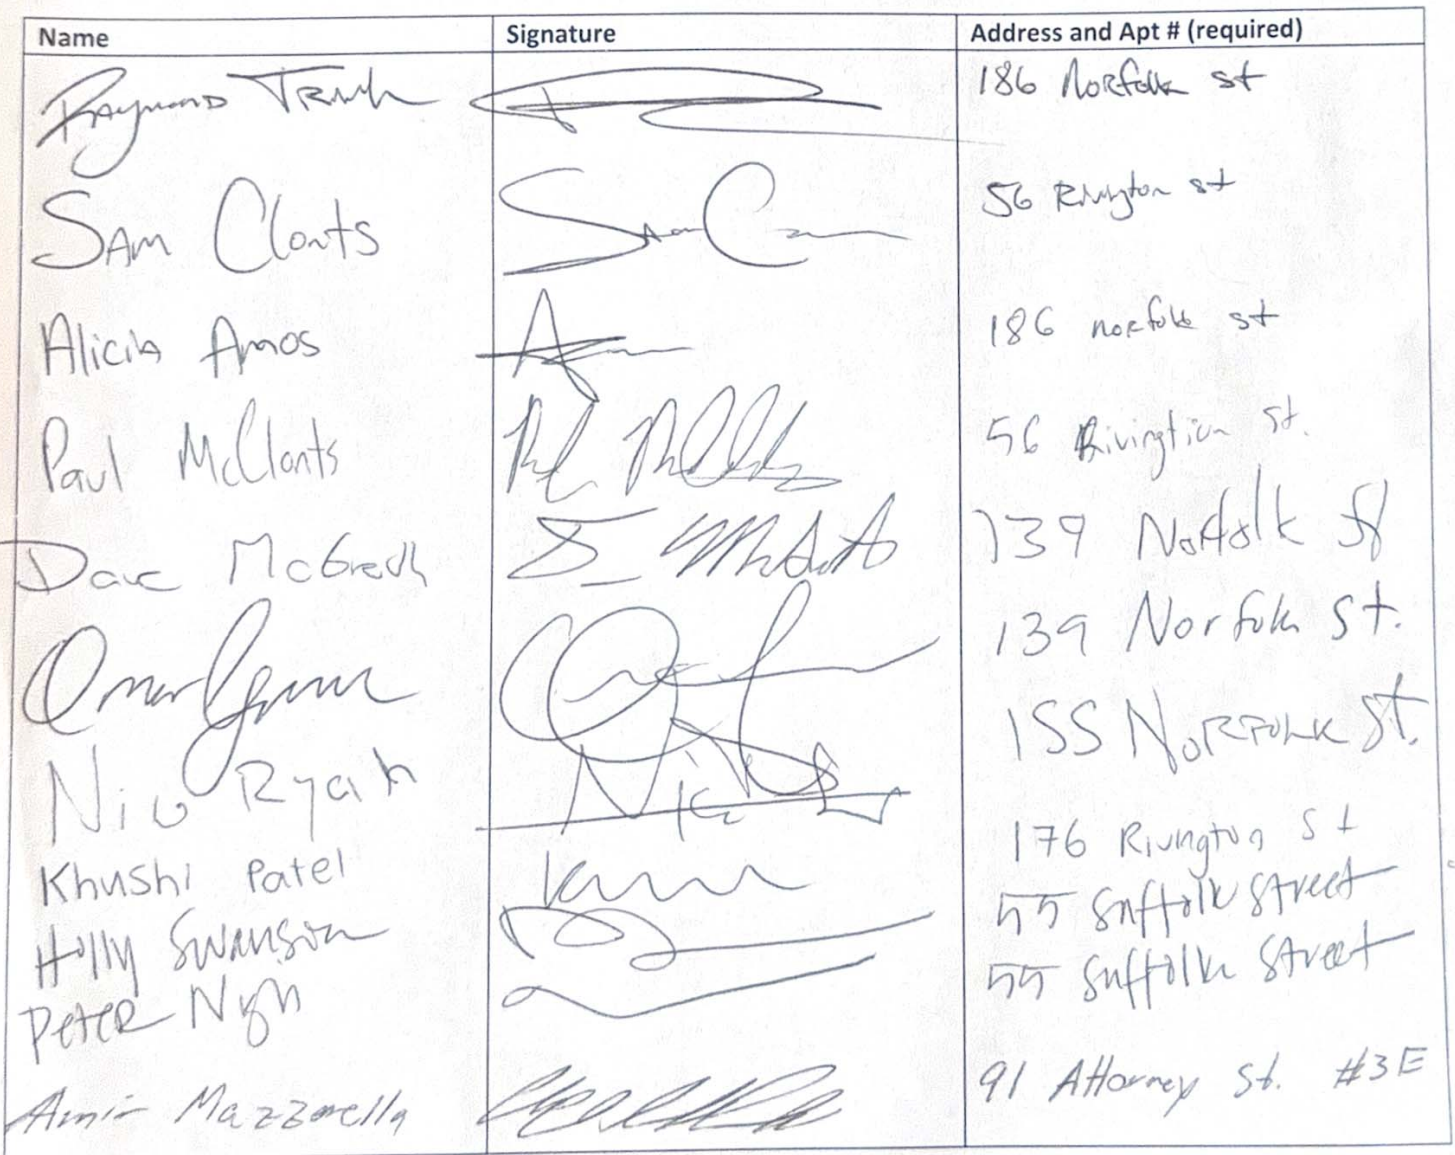 Name Signature Address and Apt # (required)
Raymond 186 Norfolk st
Sam Clonts Sam C 56 Rivington st
Alicia Amos A 186 norfolk st
Paul McClonts 56 Rivingtion St.
Dave McGrath 139 Norfolk st
Omar 139 Norfolk St.
Nico Ryan Nic 155 NORFOLK St.
Khushi Patel 176 Rivington St
Holly Swanson 55 Suffolk Street
PETER Ngh 55 Suffolk Street
Amir Mazzarella 91 Attorney St. #3E